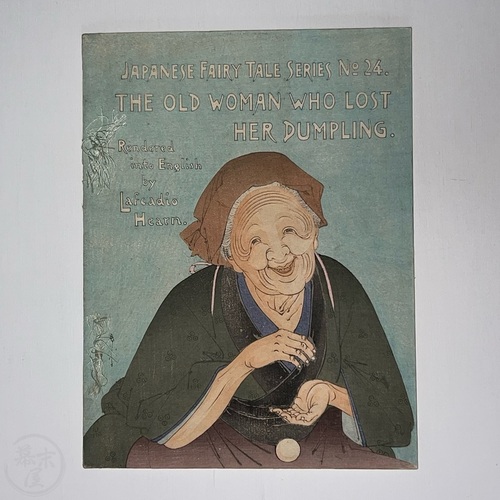 JAPANESE FAIRY TALE SERIES No 24.
THE OLD WOMAN WHO LOST
HER DUMPLING.
Rendered
into English
by
Lafcadio
Hearn.
幕末屋